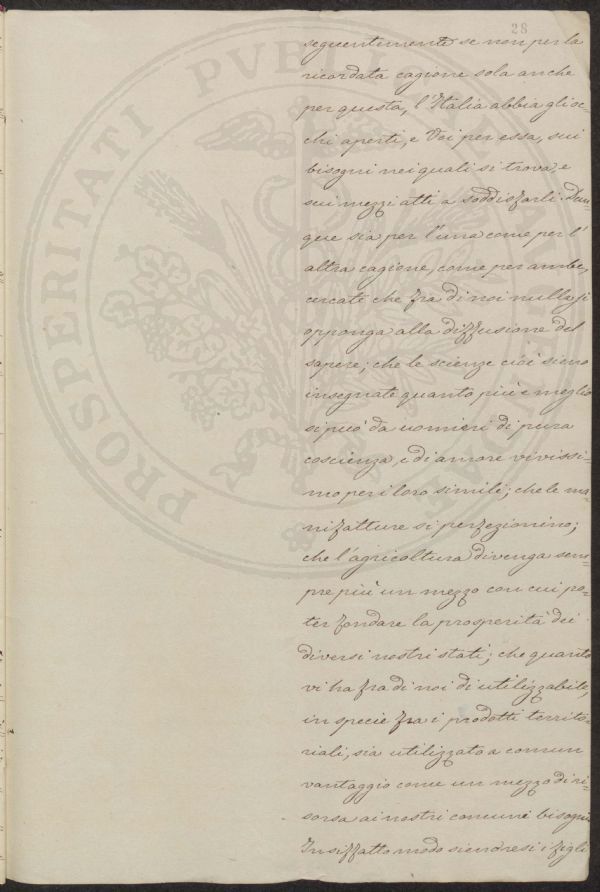 28
seguentemente se non per la
ricordata cagione sola anche
per questa, l'Italia abbia gli oc=
chi aperti, e Voi per essa, sui
bisogni nei quali si trova, e
sui mezzi atti a soddisfarli. Dun=
que sia per l'una come per l'
altra cagione, come per ambe,
cercate che fra di noi nulla si
opponga alla diffusione del
sapere; che le scienze cioè sieno
insegnate quanto più e meglio
si può da uomini di pura
coscienza, e di amore vivissi=
mo per i loro simili; che le ma=
nifatture si perfezionino;
che l'agricoltura divenga sem=
pre più un mezzo con cui po=
ter fondare la prosperità dei
diversi nostri stati; che quanto
vi ha fra di noi di utilizzabile,
in specie fra i prodotti territo=
riali, sia utilizzato a comun
vantaggio come un mezzo di ri=
sorsa ai nostri comuni bisogni.
In siffatto modo i figli
PROSPERITATI PVBLICAE